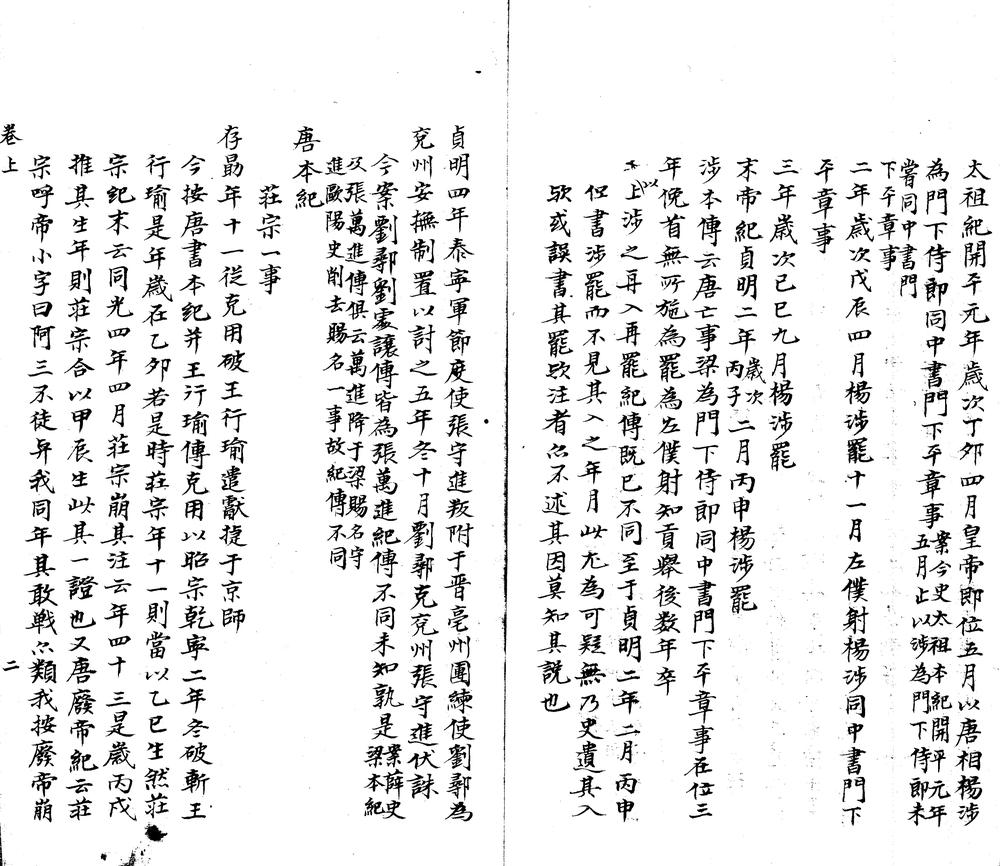 太祖紀開平元年歲次丁夘四月皇帝即位五月以唐相楊涉
為門下侍郎同中書門下平章事案今史太祖本紀開平元年
五月止以涉為門下侍郎未
嘗同中書門
下平章事
二年歲次戊辰四月楊涉罷十一月左僕射楊涉同中書門下
平章事
三年歲次己巳九月楊涉罷
末帝紀貞明二年歲次
丙子二月丙申楊涉罷
涉本傳云唐亡事梁為門下侍郎同中書門下平章事在位三
年俛首無所施為罷為左僕射知貢舉後数年卒
以上涉之再入再罷紀傳既已不同至于貞明二年二月丙申
但書涉罷而不見其入之年月此尤為可疑無乃史遺其入
欤或誤書其罷欤注者亦不述其因莫知其說也
貞明四年泰寧軍節度使張守進叛附于晋亳州團練使劉鄩為
兖州安撫制置以討之五年冬十月劉鄩克兖州張守進伏誅
今案劉鄩劉處讓傳皆為張萬進紀傳不同未知孰是案薛史
梁本紀
及張萬進傳俱云萬進降于梁賜名守
進歐陽史削去賜名一事故紀傳不同
唐本紀
莊宗一事
存勗年十一從克用破王行瑜遣獻捷于京師
今按唐書本紀并王行瑜傳克用以昭宗乾寧二年冬破斬王
行瑜是年歲在乙夘若是時莊宗年十一則當以乙巳生然莊
宗紀末云同光四年四月莊宗崩其注云年四十三是歲丙戌
推其生年則莊宗合以甲辰生此其一證也又唐廢帝紀云莊
宗呼帝小字曰阿三不徒與我同年其敢戰亦類我按廢帝崩
卷上
二